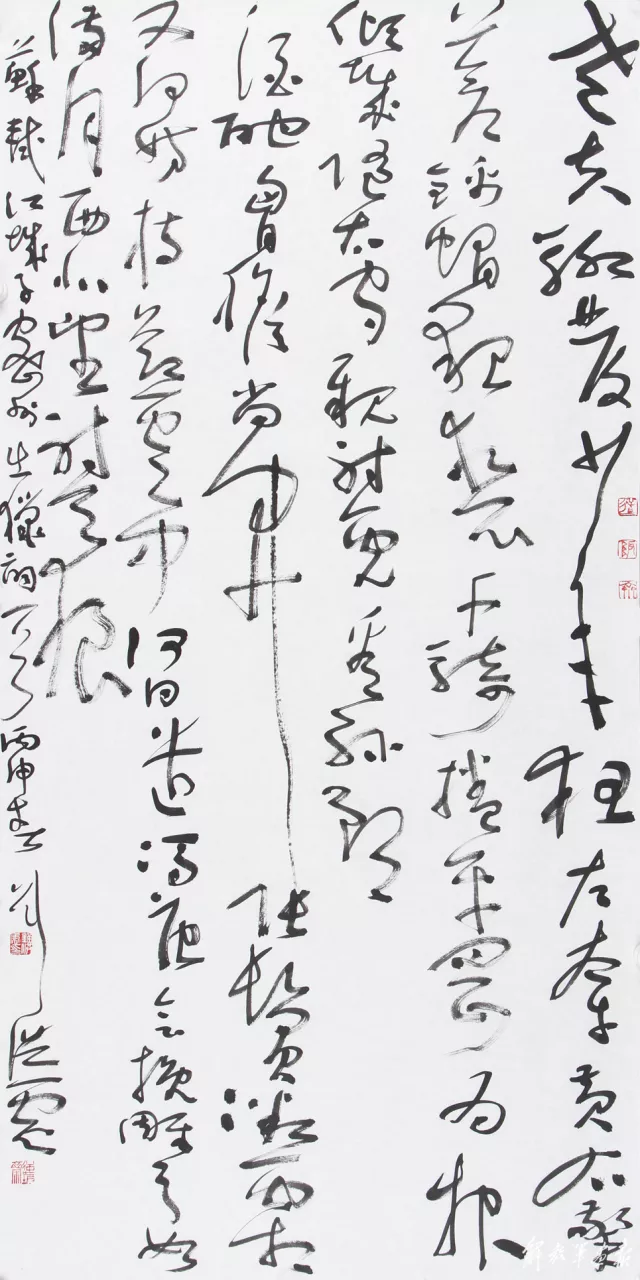 老夫聊發少年狂左牽黃右擎
蒼錦帽貂裘千騎捲平岡為報
傾城隨太守親射虎看孫郎
酒酣胸膽尚開張鬢微霜
又何妨持節雲中何日遣馮唐會挽雕弓如
滿月西北望射天狼
蘇軾江城子密州出獵詞一首丙申春劉洪彪